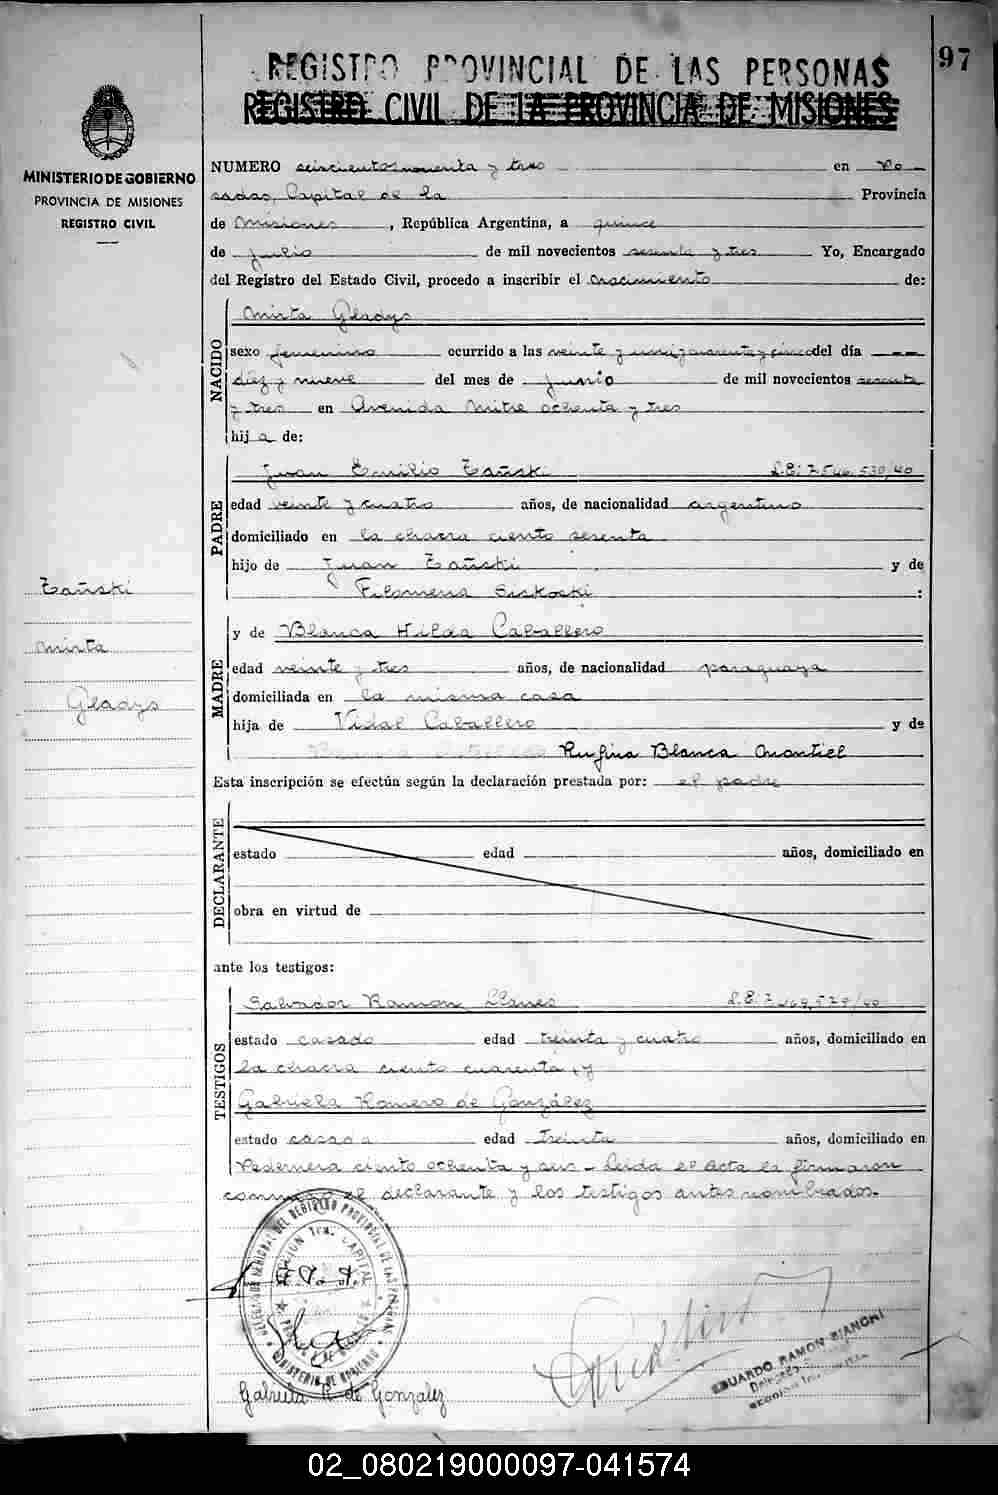 97
REGISTRO PROVINCIAL DE LAS PERSONAS
REGISTRO CIVIL DE LA PROVINCIA DE MISIONES
MINISTERIO DE GOBIERNO
PROVINCIA DE MISIONES
REGISTRO CIVIL
NUMERO seiscientos noventa y tres en Po
sadas, Capital de la Provincia
de Misiones, República Argentina, a quince
de julio de mil novecientos sesenta y tres Yo, Encargado
del Registro del Estado Civil, procedo a inscribir el nacimiento de:
NACIDO
Mirta Gladys
sexo femenino ocurrido a las veinte y una y cuarenta y cinco del día
diez y nueve del mes de junio de mil novecientos sesenta
y tres en Avenida Mitre ochenta y tres
hij a de:
PADRE
Juan Emilio Zañski L.E: 7.546.530/40
edad veinte y cuatro años, de nacionalidad argentino
domiciliado en la chacra ciento sesenta
hijo de Juan Zañski y de
Filomena Siskoski :
Zañski
Mirta
Gladys
MADRE
y de Blanca Hilda Caballero
edad veinte y tres años, de nacionalidad paraguaya
domiciliada en la misma casa
hija de Vidal Caballero y de
Rufina Blanca Montiel
Esta inscripción se efectúa según la declaración prestada por: el padre
DECLARANTE
estado edad años, domiciliado en
obra en virtud de
ante los testigos:
TESTIGOS
Salvador Ramon Llanes L.E.
estado casado edad treinta y cuatro años, domiciliado en
la chacra ciento cuarenta, y
Gabriela Romero de González
estado casada edad treinta años, domiciliado en
Pedernera ciento ochenta y seis - Leida el acta la firmaron
conmigo el declarante y los testigos antes nombrados.
MINISTERIO DE GOBIERNO
Gabriela R. de Gonzalez
EDUARDO RAMON BIANCHI
Delegado
02_080219000097-041574